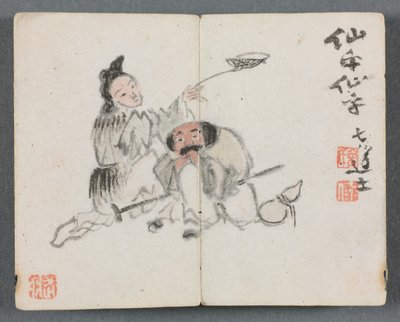 仙乎仙乎
七道士